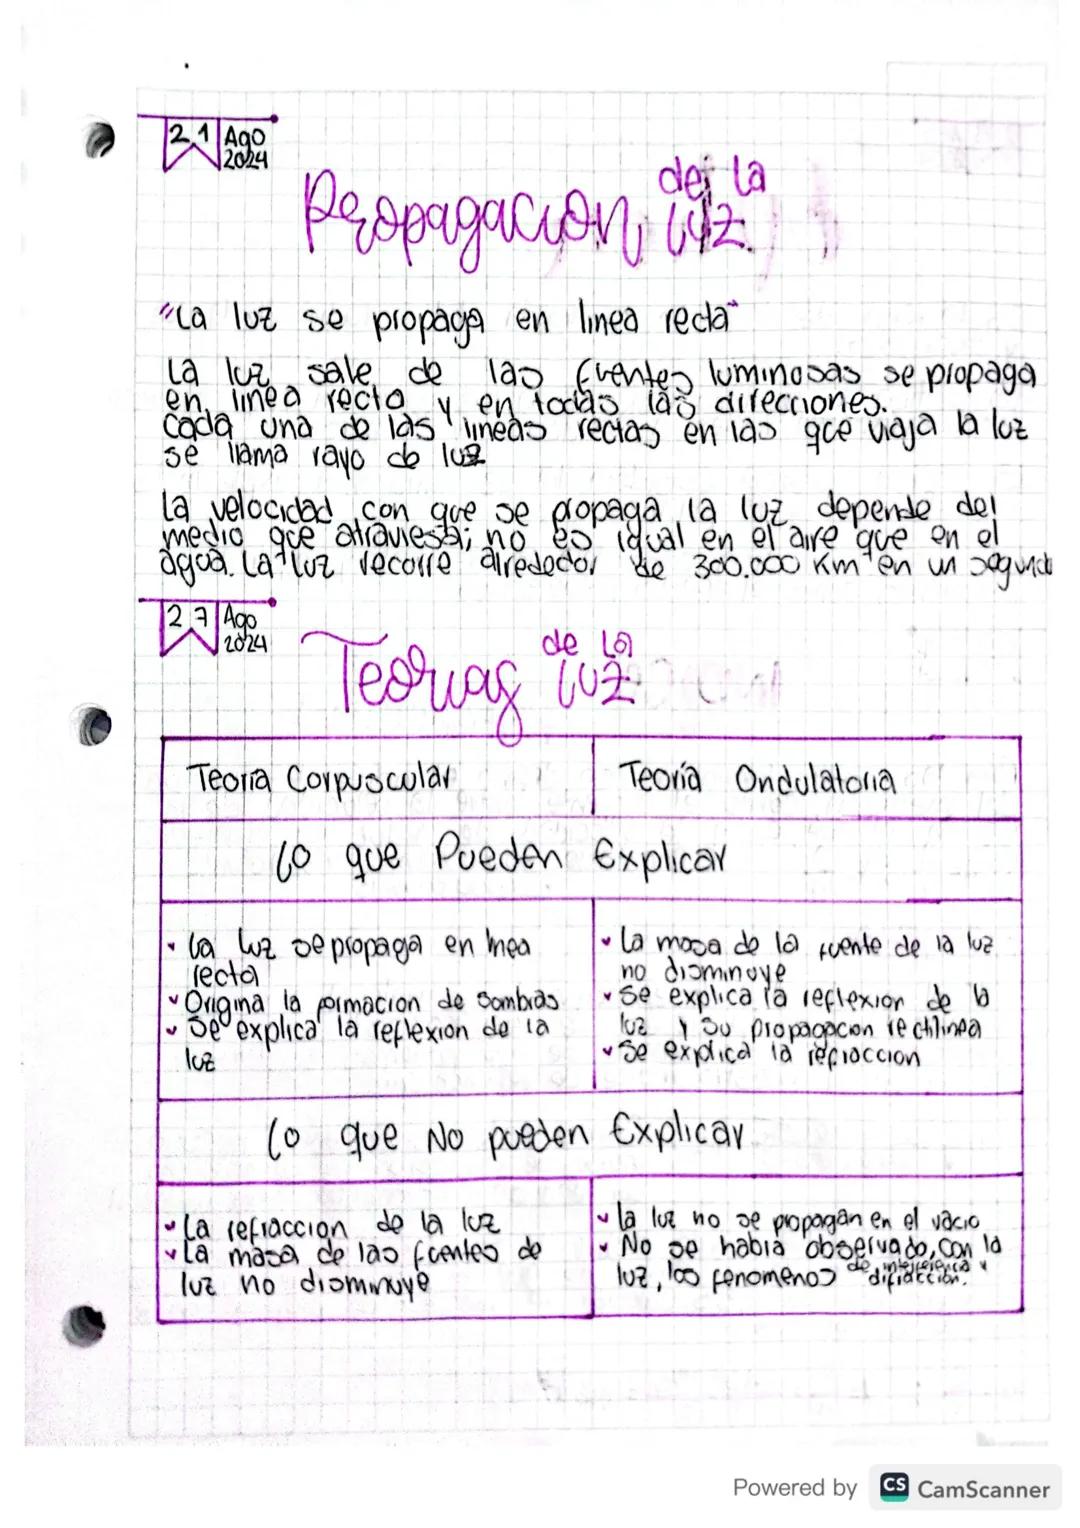 21 Ago
2024
Propagacion de la
luz
"La luz se propaga en linea recta"
La luz sale de las fuentes luminosas se propaga
en linea recta y en todas las direcciones.
Cada una de las lineas rectas en las que viaja la luz
se llama rayo de luz
La velocidad con que se propaga la luz depende del
medio que atraviesa; no es igual en el aire que en el
agua. La luz recorre alrededor de 300.000 Km en un segundo
27 Ago
2024
Teorias de la
luz
Teoria Corpuscular
Teoría Ondulatoria
Lo que Pueden Explicar
La luz se propaga en linea
recta
Origina la formacion de sombras
Se explica la reflexion de la
luz
La masa de la fuente de la luz
no disminuye
Se explica la reflexion de la
luz y su propagacion rectilinea
Se explica la refraccion
Lo que No pueden Explicar
La refraccion de la luz
La masa de las fuentes de
luz no disminuye
La luz no se propagan en el vacio
No se habia observado, con la
luz, los fenomenos de interferencia y
difraccion.
Powered by CS CamScanner